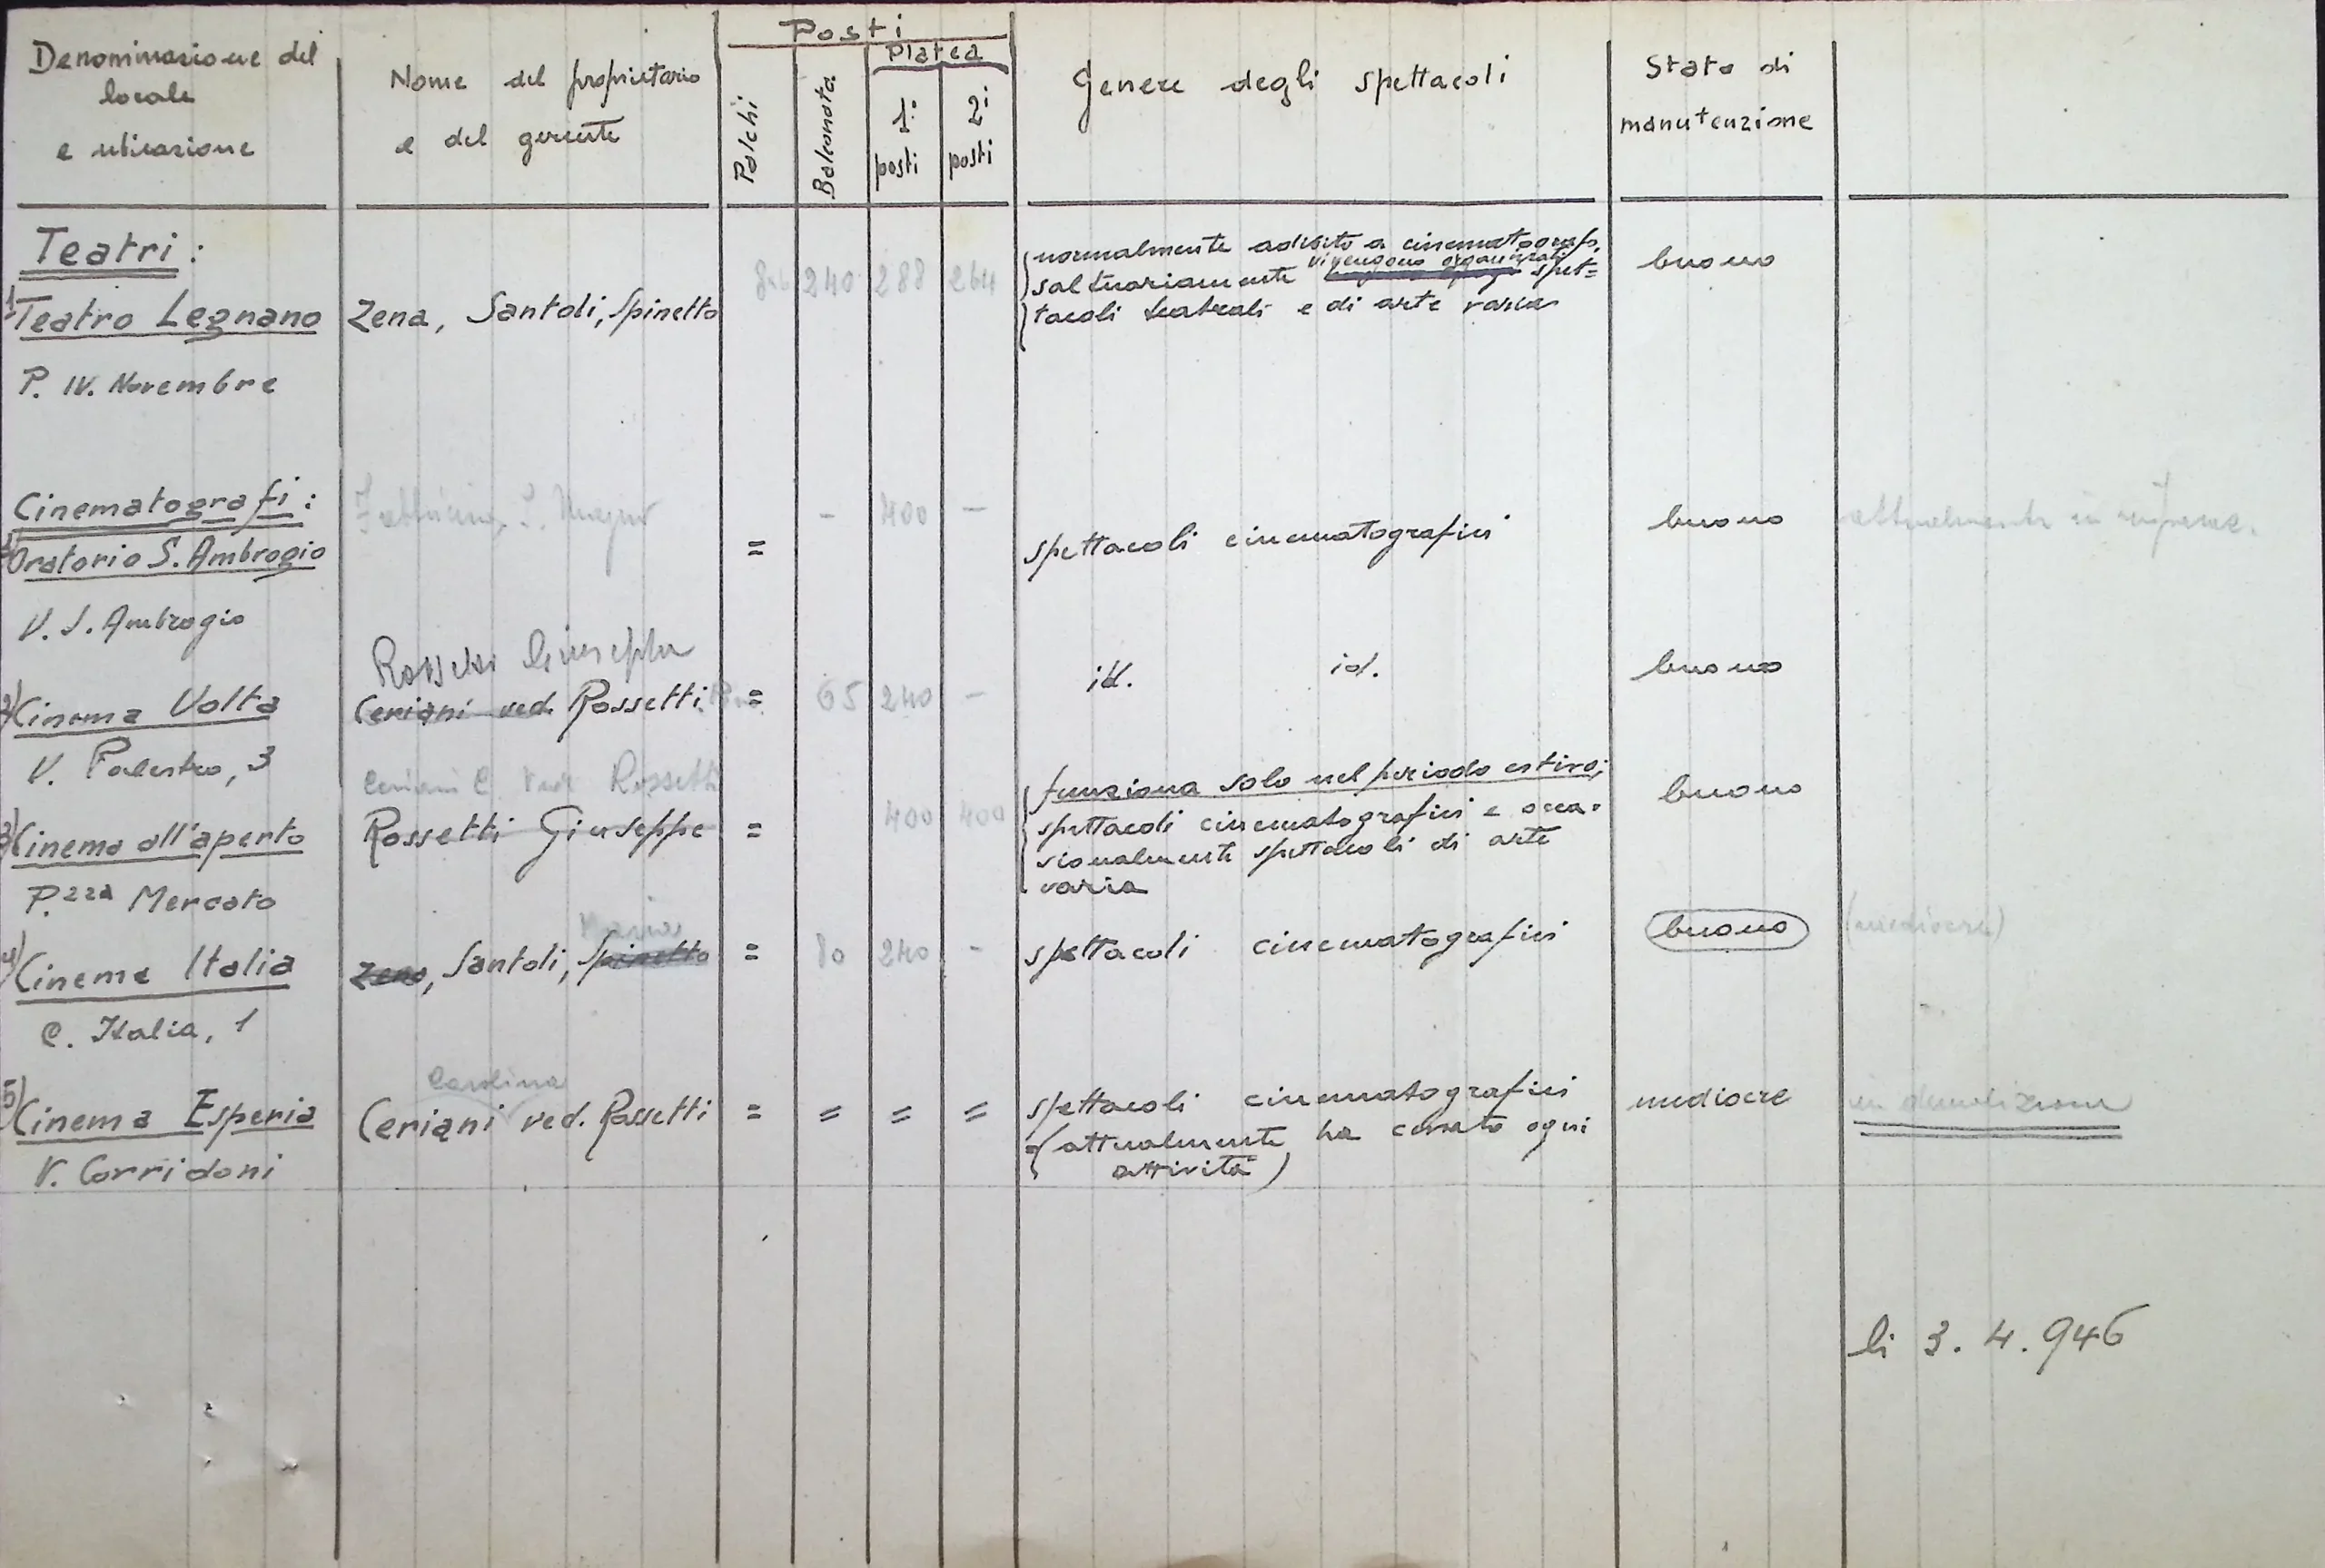 Denominazione del
locale
e ubicazione
Nome del proprietario
e del gerente
Posti
Palchi
Balconata
Platea
1i
posti
2i
posti
Genere degli spettacoli
Stato di
manutenzione
Teatri:
1) Teatro Legnano
P. IV. Novembre
Zena, Santoli, Spinetto
240
288
264
normalmente adibito a cinematografo,
saltuariamente vi vengono organizzati spet=
tacoli teatrali e di arte varia
buono
Cinematografi:
1) Oratorio S. Ambrogio
V. S. Ambrogio
=
-
400
-
spettacoli cinematografici
buono
attualmente in
2) Cinema Volta
V. Palestro, 3
Rossetti Giuseppe
Ceriani ved. Rossetti
=
65
240
-
id. id.
buono
3) Cinema all'aperto
P.zza Mercato
Ceriani C. ved. Rossetti
Rossetti Giuseppe
=
400
400
funziona solo nel periodo estivo;
spettacoli cinematografici e occa=
sionalmente spettacoli di arte
varia
buono
4) Cinema Italia
C. Italia, 1
Zena, Santoli, Spinetto
=
80
240
-
spettacoli cinematografici
buono
(mediocre)
5) Cinema Esperia
V. Corridoni
Carolina
Ceriani ved. Rossetti
=
=
=
=
spettacoli cinematografici
(attualmente ha cessato ogni
attività)
mediocre
in demolizione
li 3.4.946